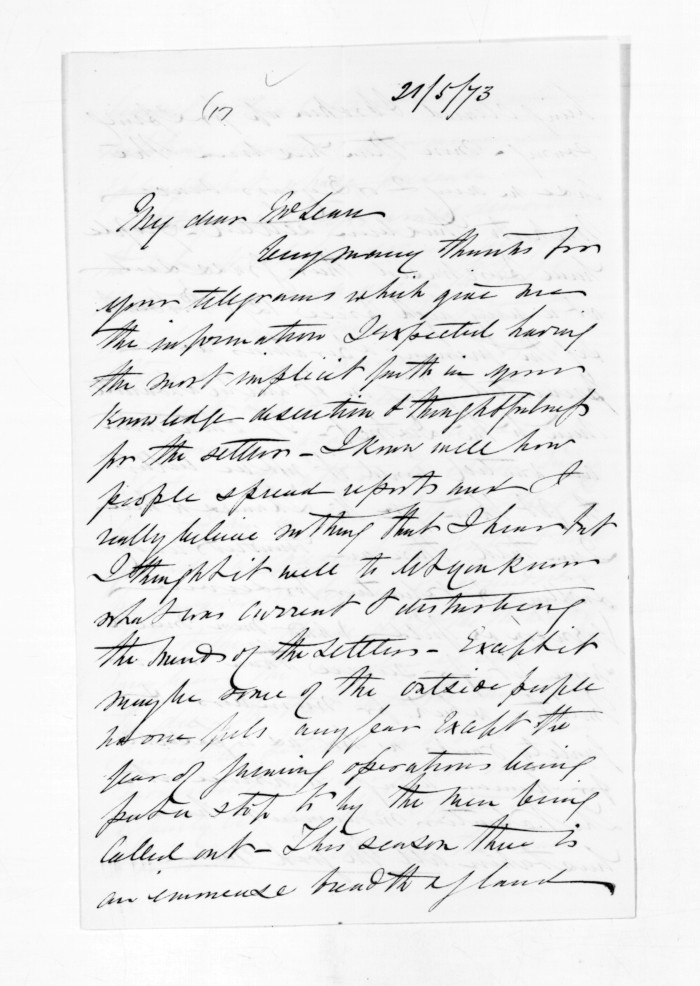 21/5/73
My dear McLean
Very many thanks for
your telegrams which give me
the information I expected having
the most implicit faith in your
knowledge discretion & thoughtfulness
for the settlers - I know well how
people spread reports and I
really believe nothing that I hear but
I thought it well to let you know
what was current & disturbing
the minds of the Settlers - Except it
may be some of the outside people
no one feels any fear Except the
fear of farming operations being
put a stop to by the men being
called out - This season there is
an immense breadth of land